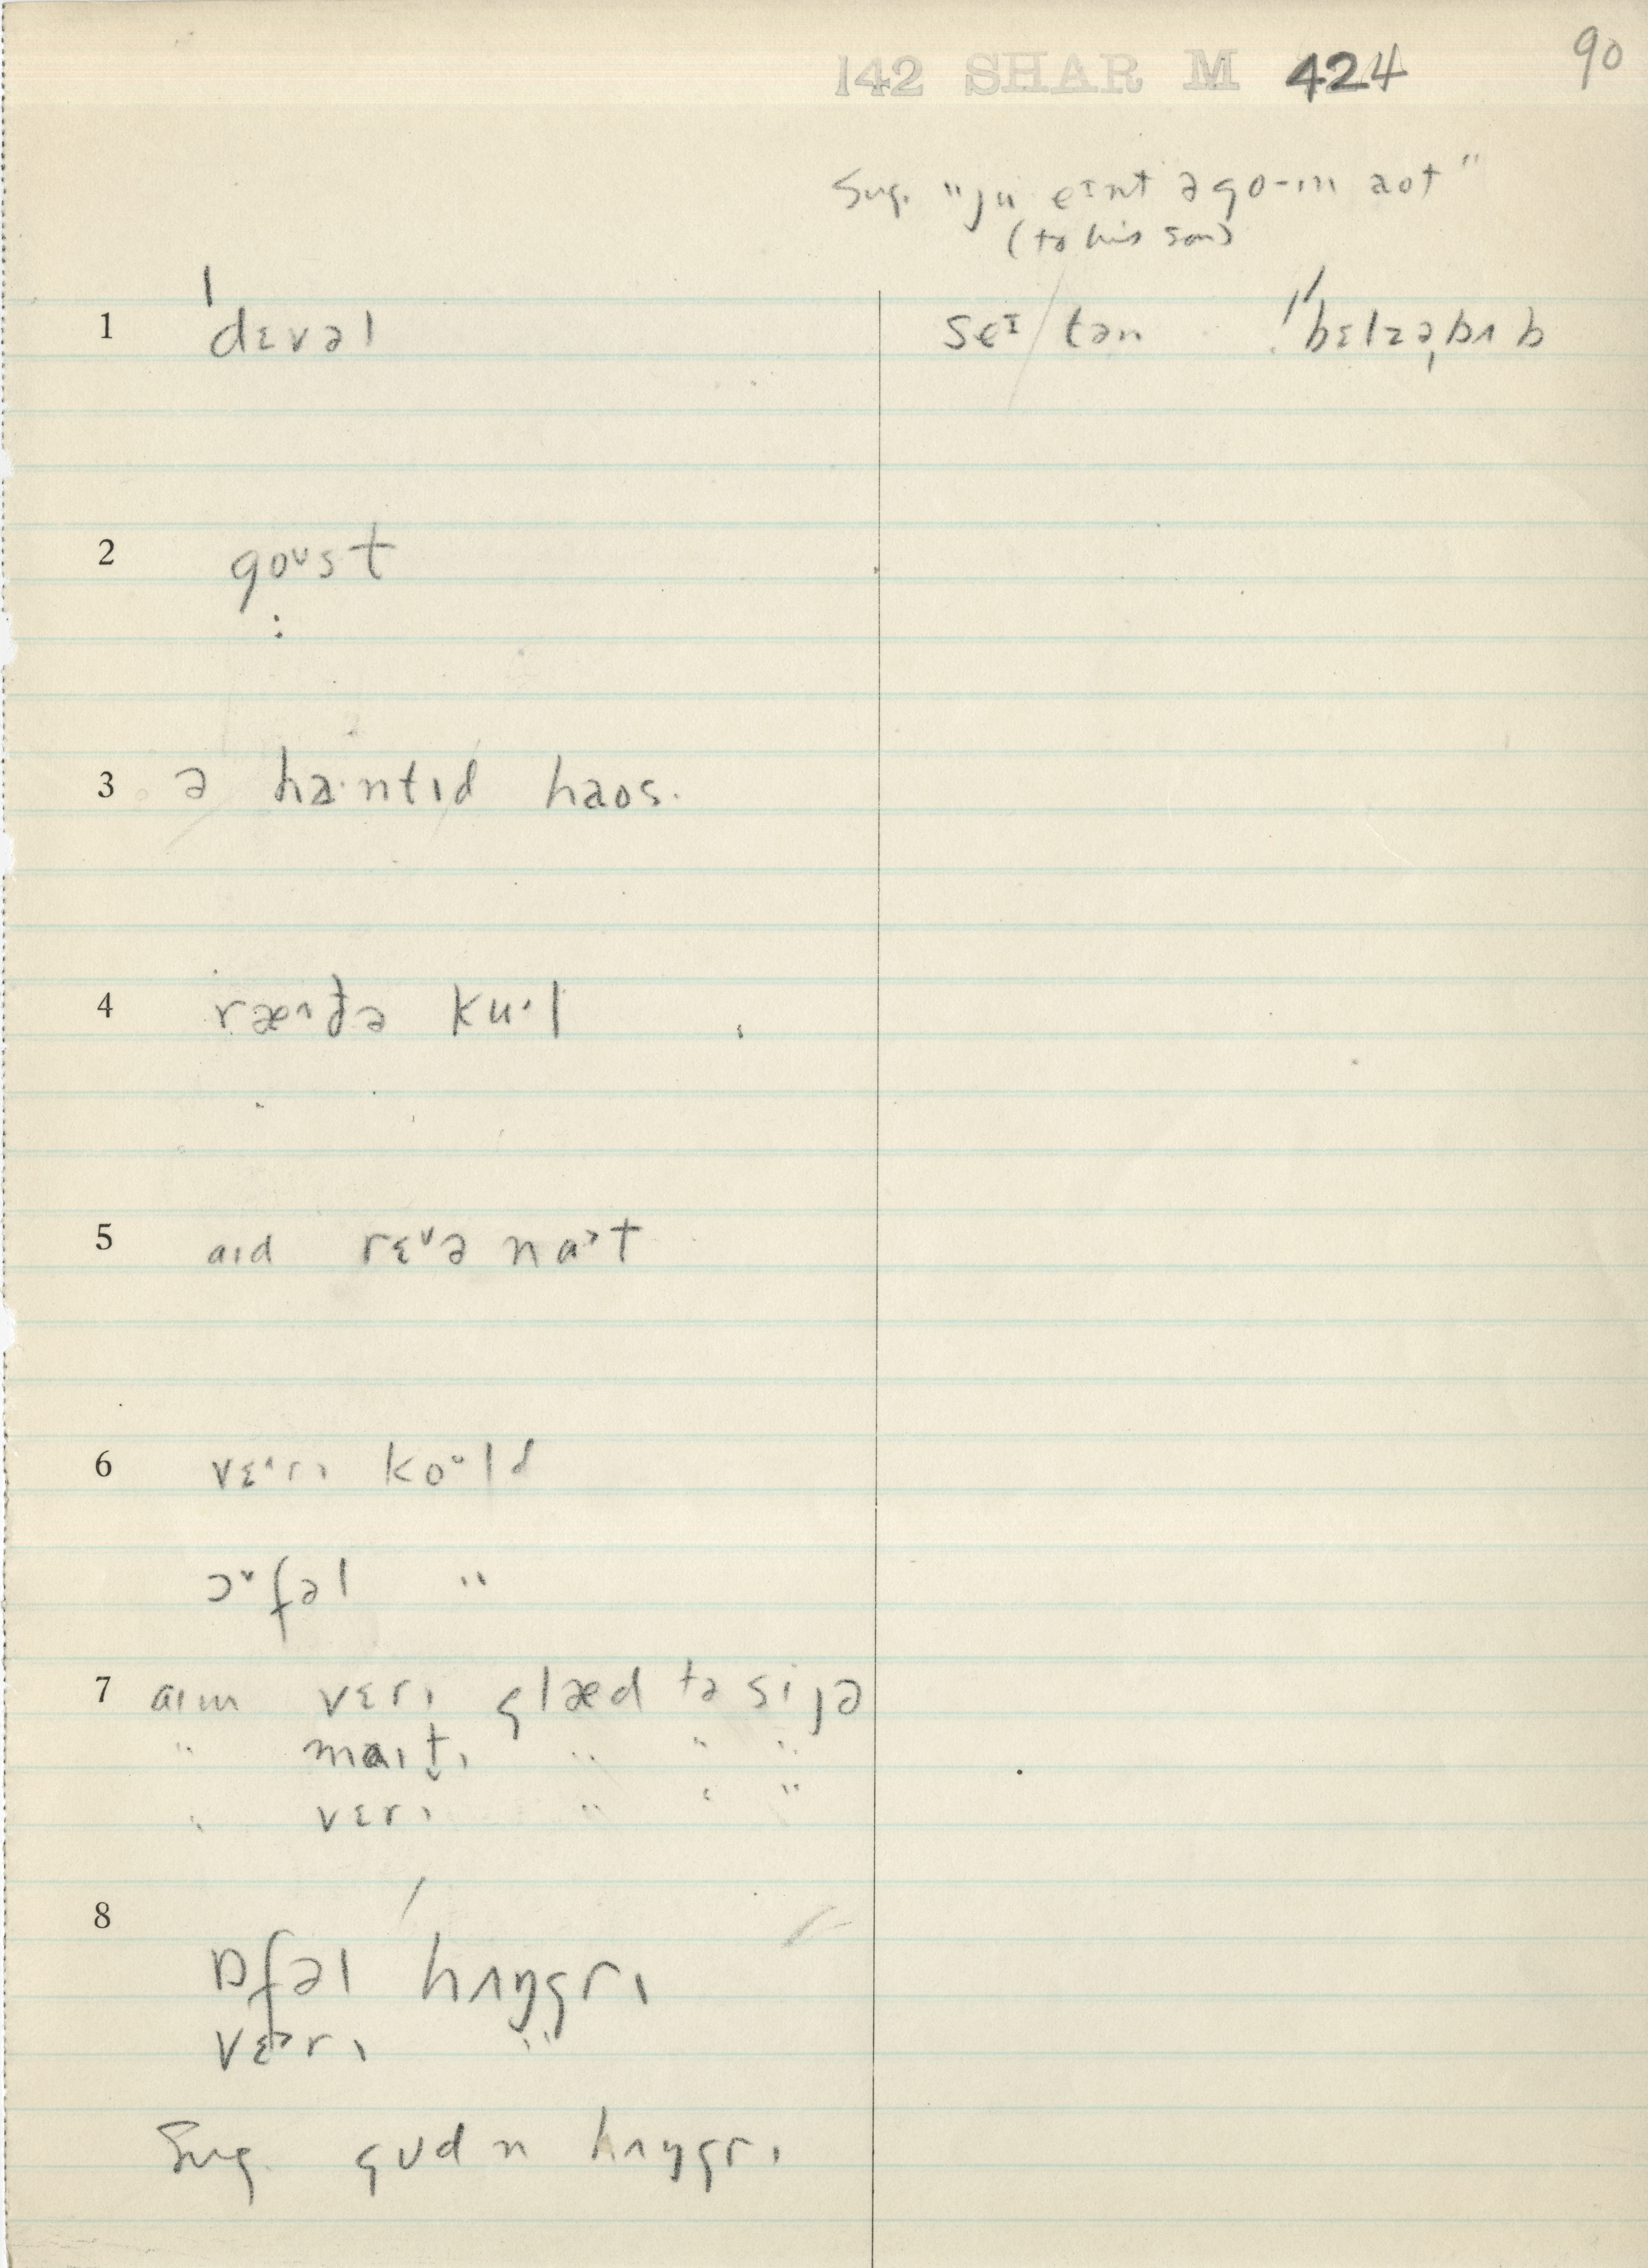 142 SHAR M 424 90
Sug. "ju eɪnt ə go-ɪn aot"
(to his son)
1 ˈdɛvəl seɪ tən ˈbɛlzəˌbʌb
2 goʊst
3 ə ha·ntɪd haos.
4 ku·l
5 aɪd nat
6 vɛ·rɪ ko·ld
ɔfəl "
7 aɪm vɛrɪ glæd tə si jə
" maɪt̬ɪ " " "
" vɛrɪ " " "
8
ɒfəl hʌŋgrɪ
vɛrɪ "
Sug. gʊd n hʌŋgrɪ